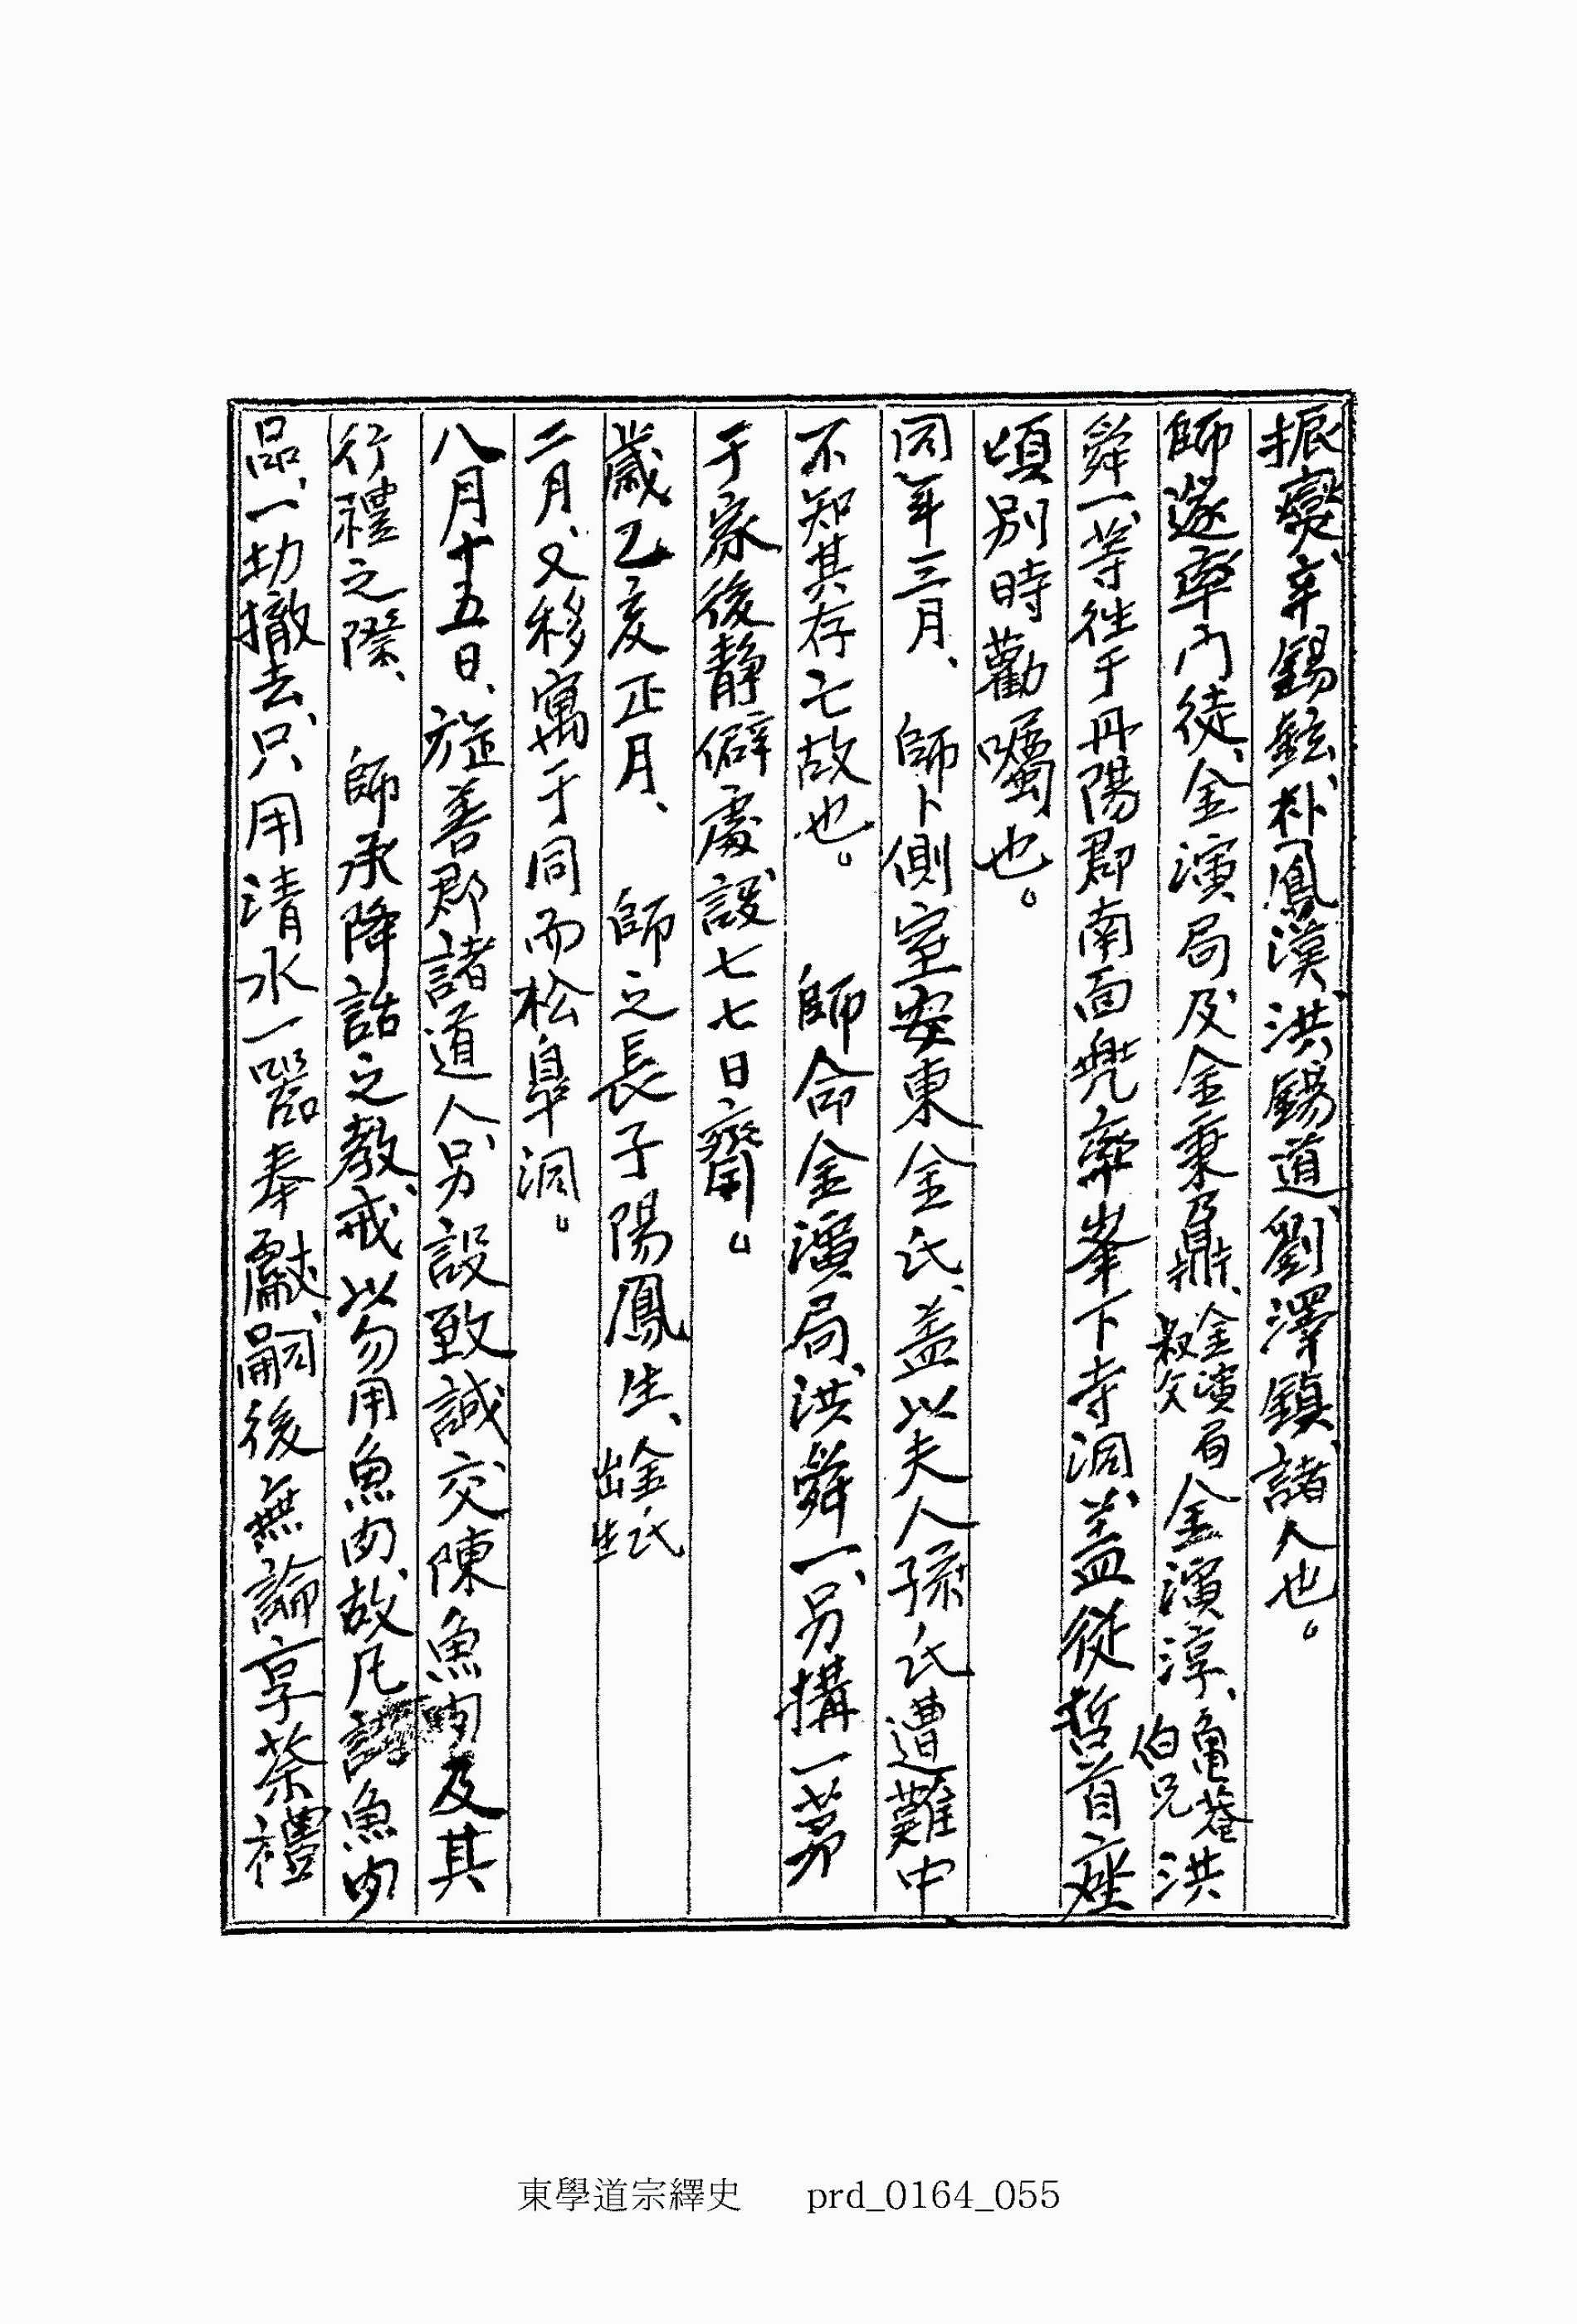 振燮、辛錫鉉、朴鳳漢、洪錫道、劉澤鎭、諸人也。
師遂率門徒、金演局及金秉鼐、金演局叔父金演淳、龜菴伯兄洪
舜一、等徃于丹陽郡南面兜率峯下寺洞、盖從哲首座
頃別時勸囑也。
同年三月、　師卜側室安東金氏、盖以夫人孫氏遭難中
不知其存亡故也。　師命金演局、洪舜一、另搆一茅
于家後靜僻處、設七七日齋。
歲乙亥正月、　師之長子陽鳳生、金氏出生
二月、又移寓于同而松皐洞。
八月十五日、旌善郡諸道人、另設致誠、交陳魚肉及其
行禮之際、　師承降話之敎、戒以勿用魚肉、故凡諸魚肉
品、一切撤去、只用清水一器奉獻、嗣後無論享祭禮
東學道宗繹史　prd_0164_055